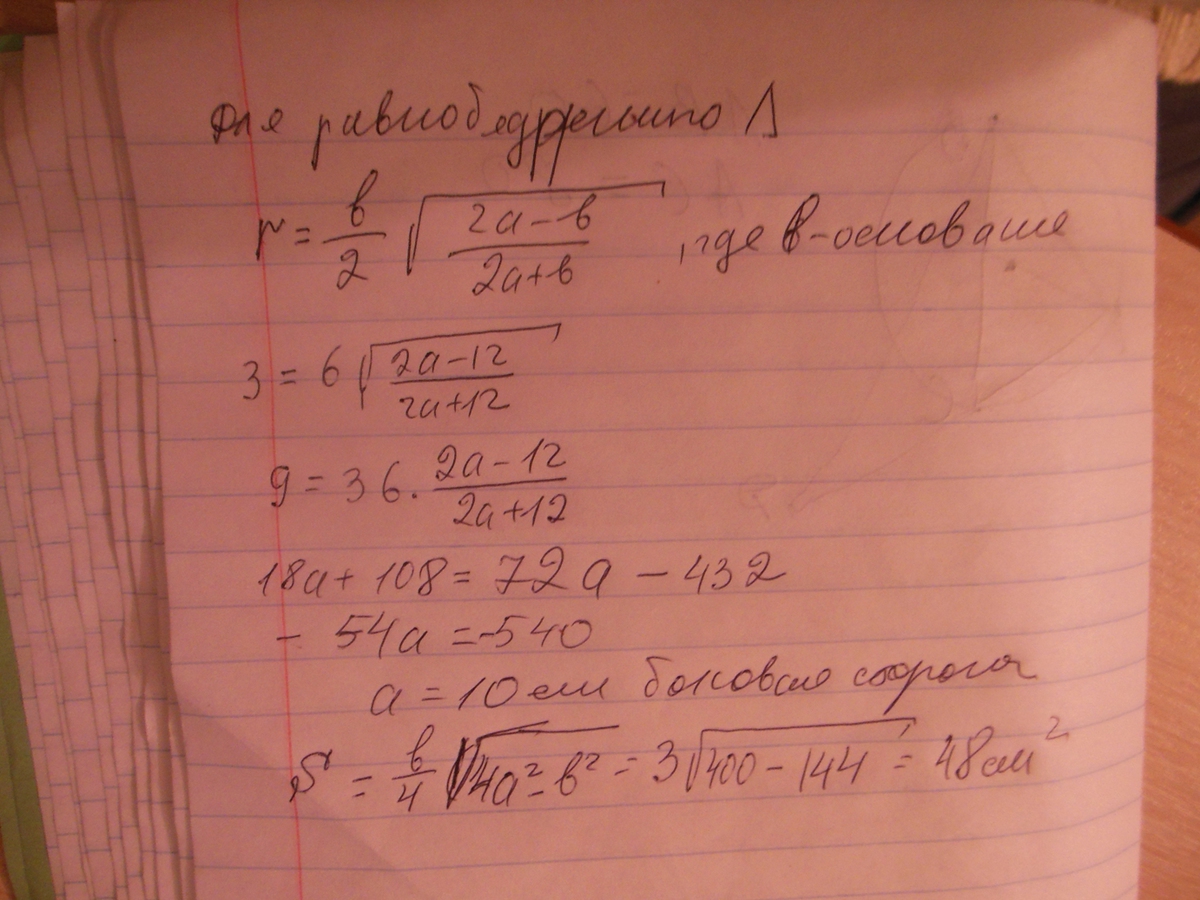 Для равнобедренного Δ
r = в/2 √((2a-в)/(2a+в)) , где в-основание
3 = 6 √((2a-12)/(2a+12))
9 = 36 · (2a-12)/(2a+12)
18a + 108 = 72a - 432
- 54a = -540
a = 10 см боковая сторона
S = в/4 √(4a²-в²) = 3√(400-144) = 48 см²